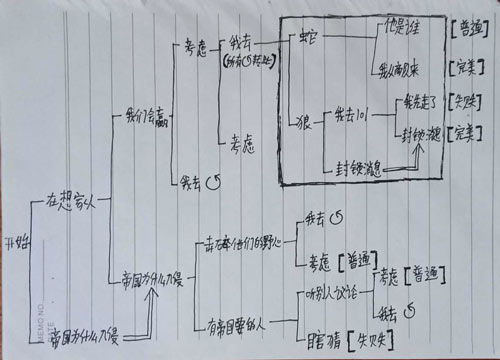 开始
在想家人
帝国为什么入侵
我们会赢
帝国为什么入侵
考虑
我去
我去
考虑
蛇
他是谁
[普通]
[完美]
狼
我去101
我先走了
[失败]
封锁消息
[完美]
封锁消息
击碎他们的野心
我去
考虑 [普通]
有帝国要的人
听别人议论
考虑 [普通]
我去
瞎猜 [失败]
MEMO NO.
DATE